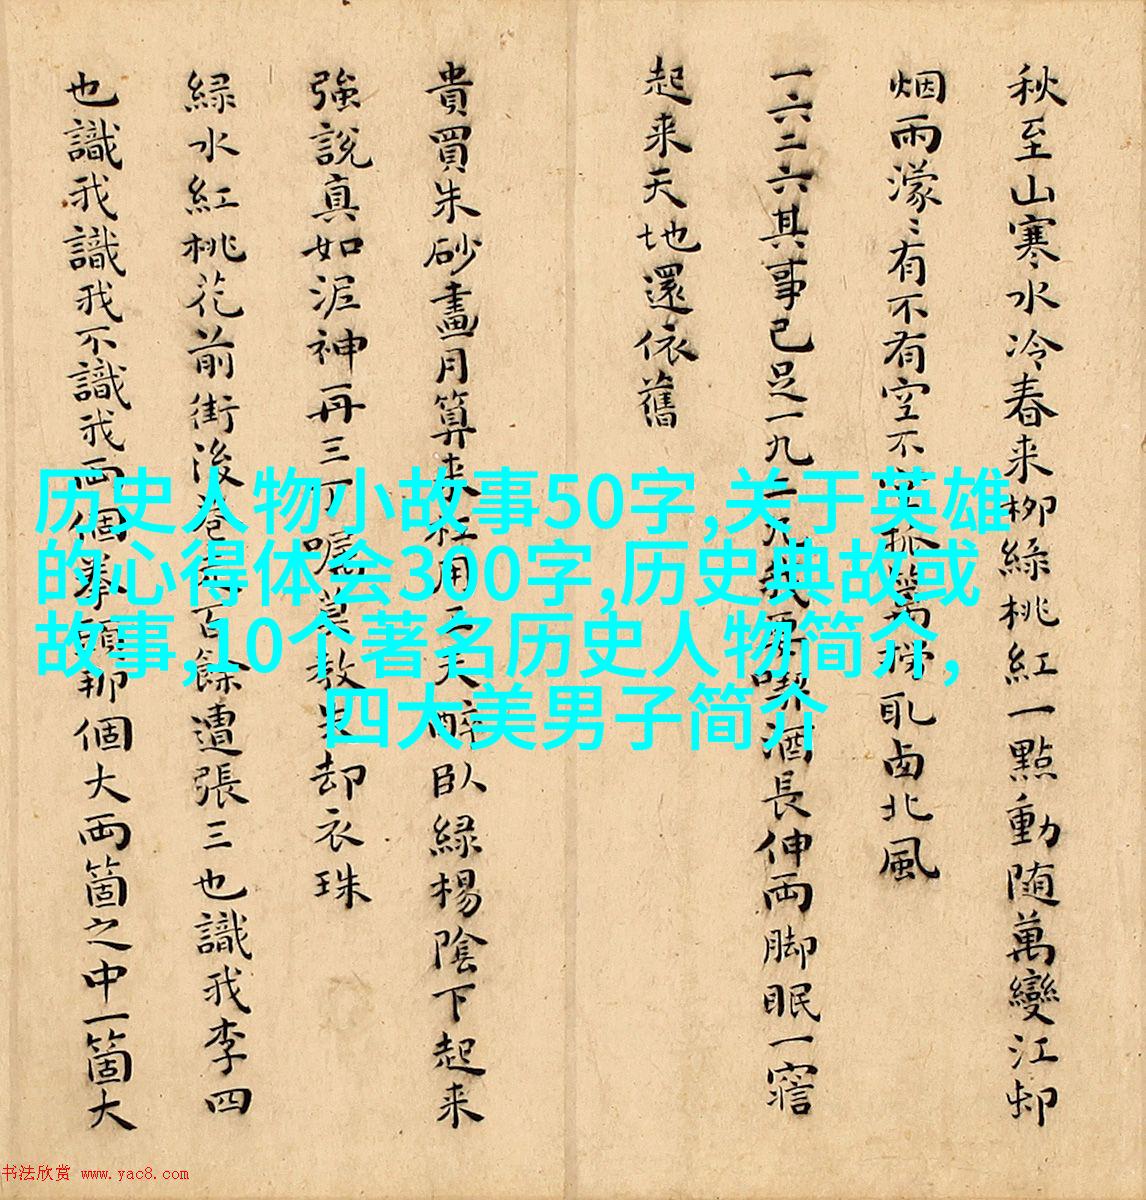 秋至山寒水冷春来柳緑桃紅一點動随萬變江邨
烟雨濛〻有不有空不空笊籬撈取西北風
一六二六其事已足一九二九我要喫酒長伸両脚眠一寤
起来天地還依舊
貴買朱砂畫月算来枉用工夫醉臥緑楊陰下起来
強説真如泥神再三叮嘱莫教失却衣珠
緑水紅桃花前街後巷走百餘遭張三也識我李四
也識我識我不識我両個拳頭那個大両箇之中一箇大
历史人物小故事50字,关于英雄
的心得体会300字,历史典故或
故事,10个著名历史人物简介,
四大美男子简介
书法欣赏 www.yac8.com